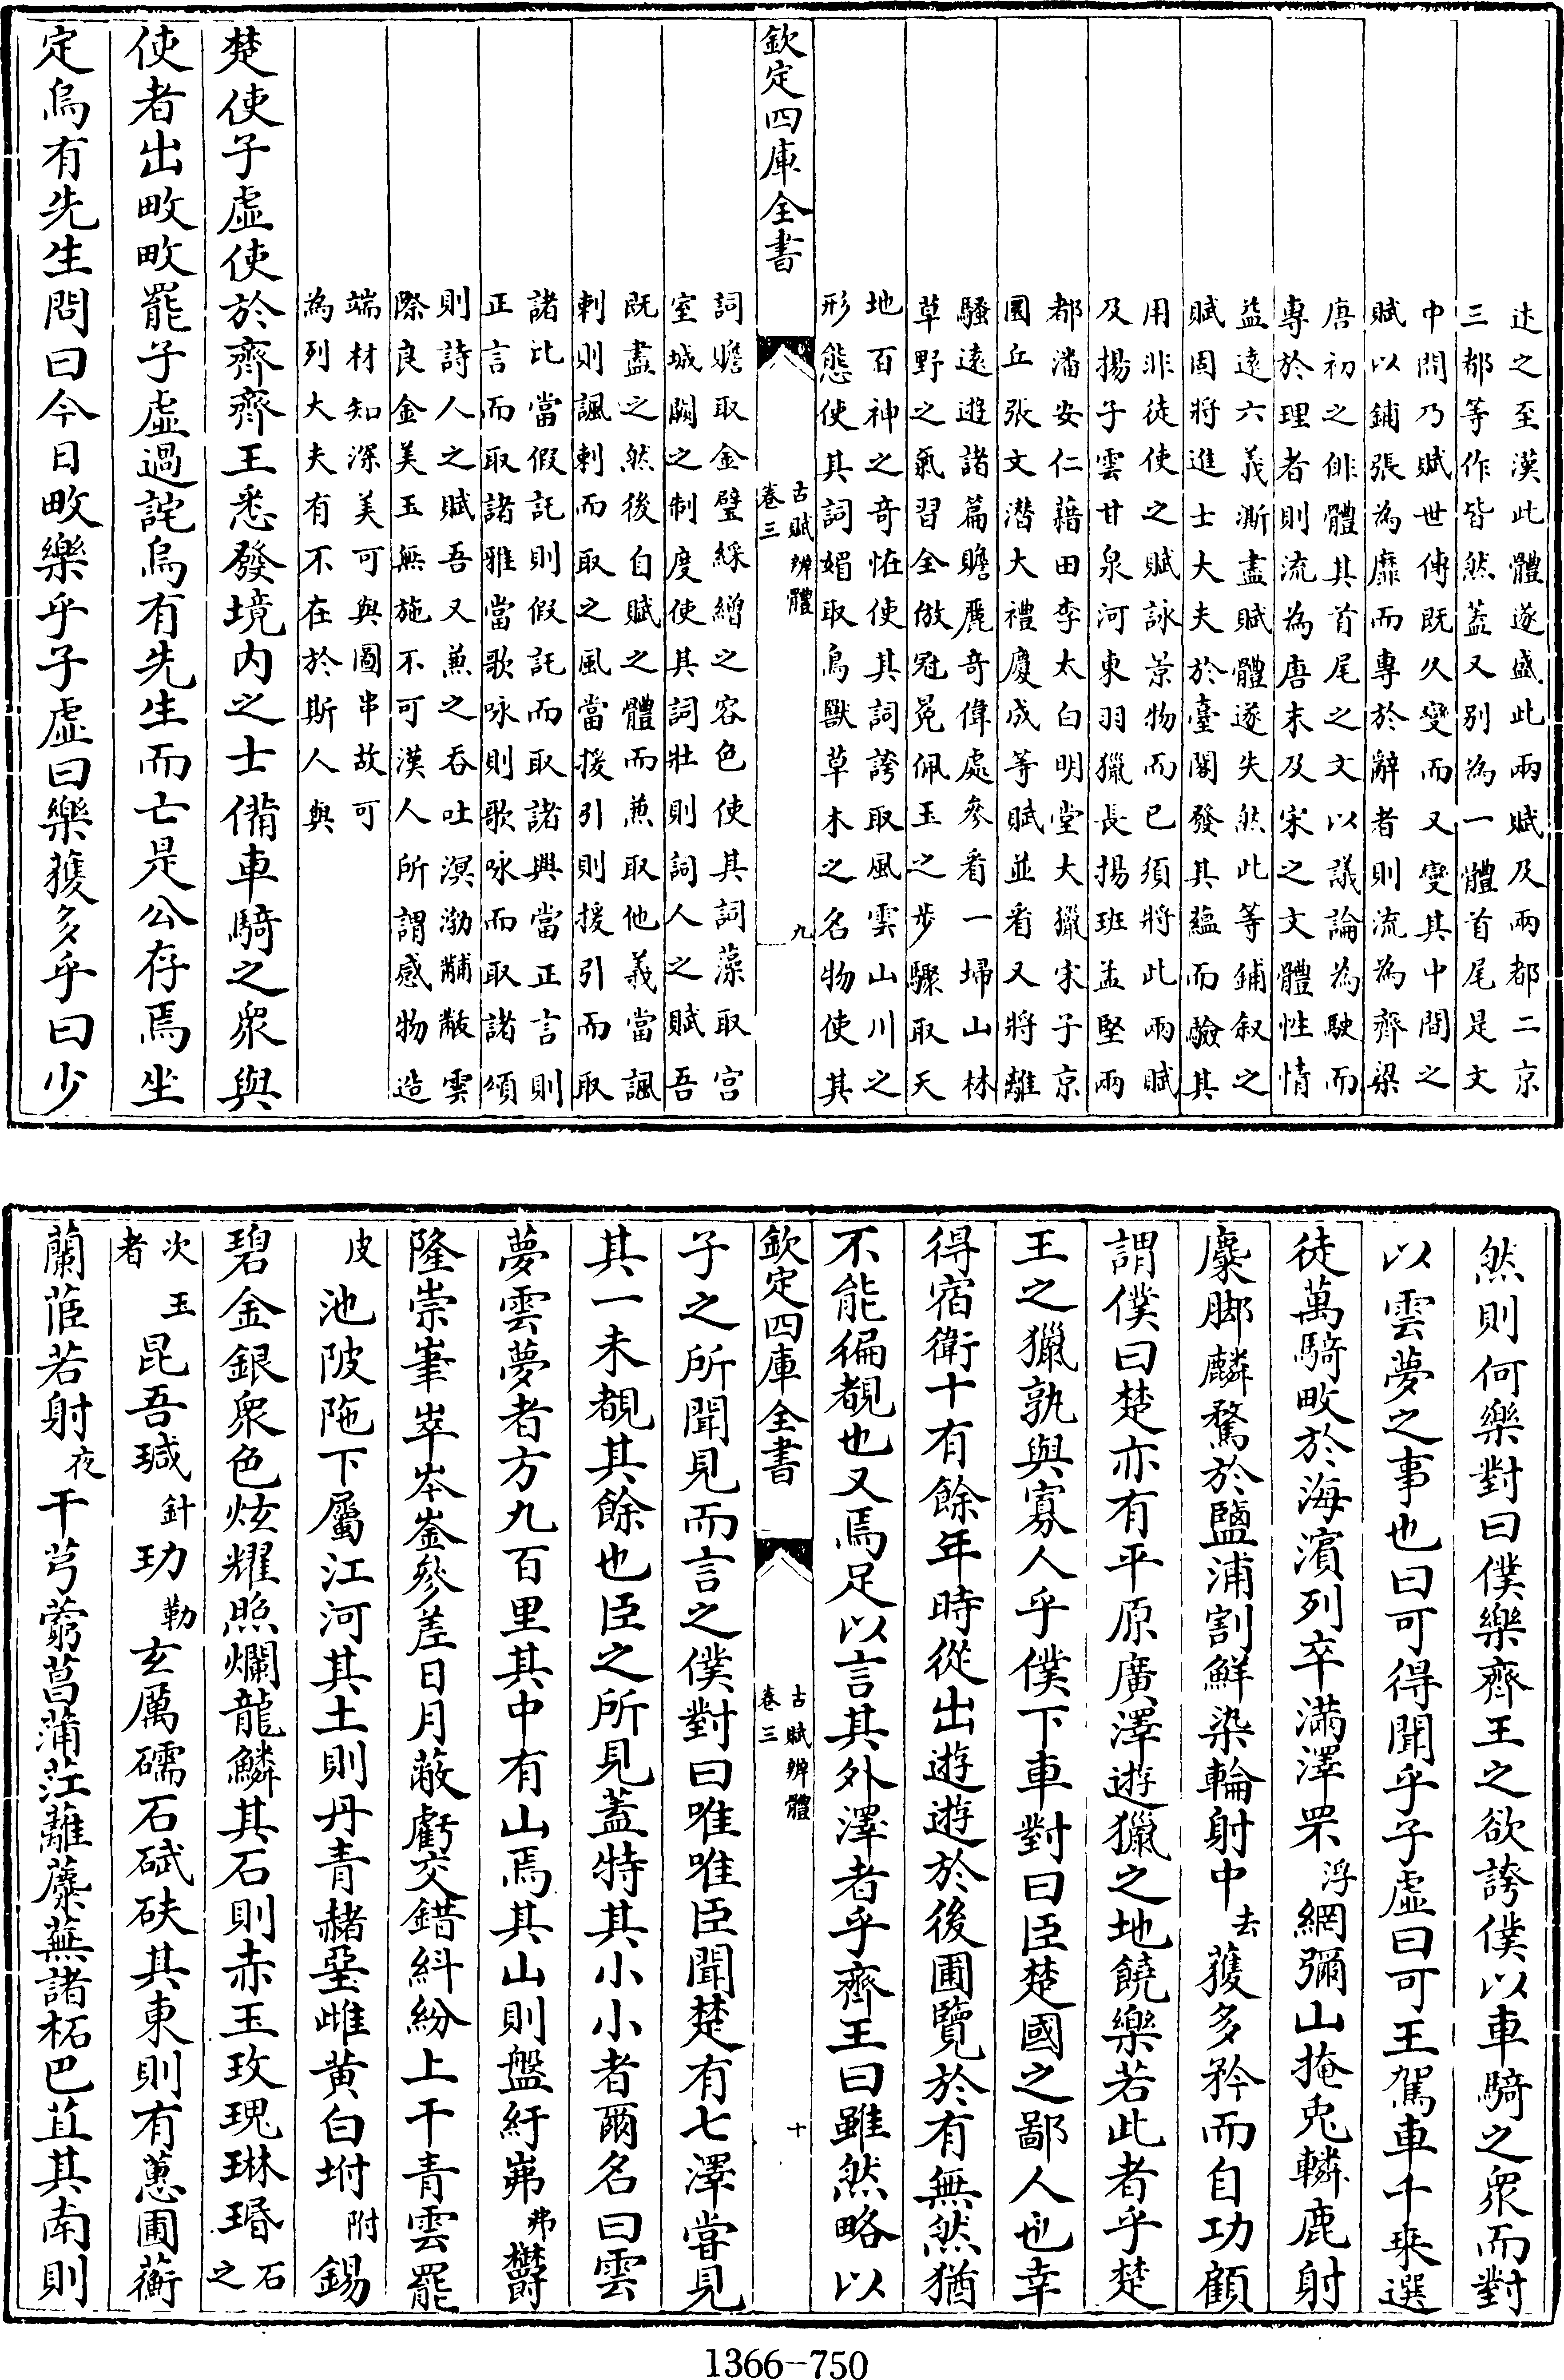 迷之至漢此體遂盛此兩賦及兩都二京
三都等作皆然蓋又别為一體首尾是文
中間乃賦世傳既久變而又變其中間之
賦以鋪張為靡而專於辭者則流為齊梁
唐初之俳體其首尾之文以議論為駛而
專於理者則流為唐末及宋之文體性情
益遠六義澌盡賦體遂失然此等鋪叙之
賦固將進士大夫於臺閣發其蘊而驗其
用非徒使之賦詠景物而已須將此兩賦
及揚子雲甘泉河東羽獵長揚班孟堅兩
都潘安仁藉田李太白明堂大獵宋子京
圜丘張文潜大禮慶成等賦並看又將離
騷逺遊諸篇贍麗竒偉處參看一埽山林
草野之氣習全倣冠冕佩玉之步驟取天
地百神之竒恠使其詞誇取風雲山川之
形態使其詞媚取鳥獸草木之名物使其
欽定四庫全書
古賦辨體
卷三
九
詞贍取金璧綵繒之容色使其詞藻取宫
室城闕之制度使其詞壯則詞人之賦吾
既盡之然後自賦之體而兼取他義當諷
刺則諷刺而取之風當援引則援引而取
諸比當假託則假託而取諸興當正言則
正言而取諸雅當歌咏則歌咏而取諸頌
則詩人之賦吾又兼之吞吐溟渤黼黻雲
際良金美玉無施不可漢人所謂感物造
端材知深美可與圖事故可
為列大夫有不在於斯人與
楚使子虚使於齊齊王悉發境内之士備車騎之衆與
使者出畋畋罷子虚過詫烏有先生而亡是公存焉坐
定烏有先生問曰今日畋樂乎子虚曰樂獲多乎曰少
然則何樂對曰僕樂齊王之欲誇僕以車騎之衆而對
以雲夢之事也曰可得聞乎子虚曰可王駕車千乗選
徒萬騎畋於海濱列卒滿澤罘浮網彌山掩兎轔鹿射
麋脚麟騖於鹽浦割鮮染輪射中去獲多矜而自功顧
謂僕曰楚亦有平原廣澤遊獵之地饒樂若此者乎楚
王之獵孰與寡人乎僕下車對曰臣楚國之鄙人也幸
得宿衛十有餘年時從出遊遊於後圃覽於有無然猶
不能徧覩也又焉足以言其外澤者乎齊王曰雖然略以
欽定四庫全書
古賦辨體
卷三
十
子之所聞見而言之僕對曰唯唯臣聞楚有七澤嘗見
其一未覩其餘也臣之所見蓋特其小小者爾名曰雲
夢雲夢者方九百里其中有山焉其山則盤紆岪弗欝
隆崇嵂崒岑崟參差日月蔽虧交錯糾紛上干青雲罷
皮池陂陁下屬江河其土則丹青赭堊雌黄白坿附錫
碧金銀衆色炫耀照爛龍鱗其石則赤玉玫瑰琳瑉石之
次玉者昆吾瑊針玏勒玄厲碝石碔砆其東則有蕙圃蘅
蘭茝若射夜干芎藭菖蒲茳蘺蘪蕪諸柘巴苴其南則
1366-750